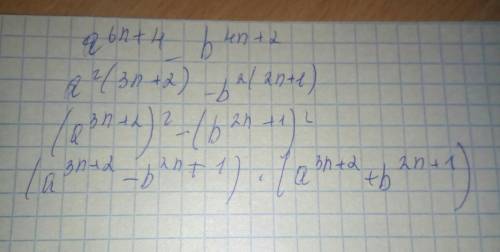 a^{6n+4} - b^{4n+2}
a^{2(3n+2)} - b^{2(2n+1)}
(a^{3n+2})^2 - (b^{2n+1})^2
(a^{3n+2} - b^{2n+1}) · (a^{3n+2} + b^{2n+1})